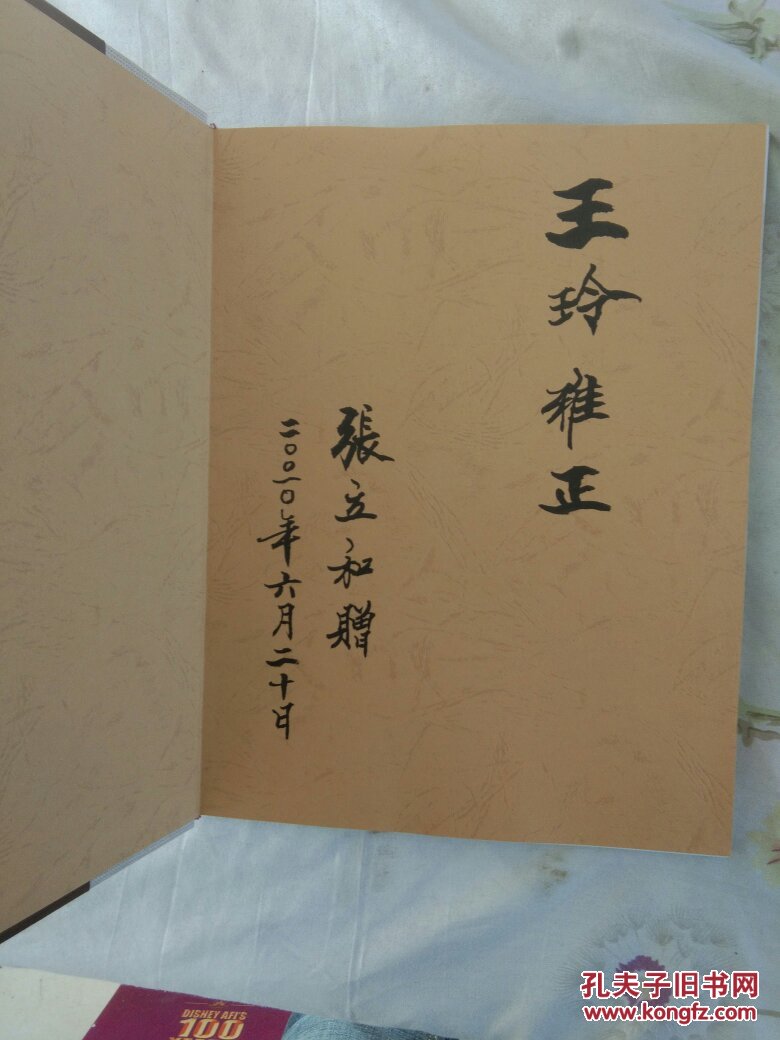 王玲雅正
張立和贈
二〇〇一〇年六月二十日
DISNEY AFI'S
100
孔夫子旧书网
www.kongfz.com